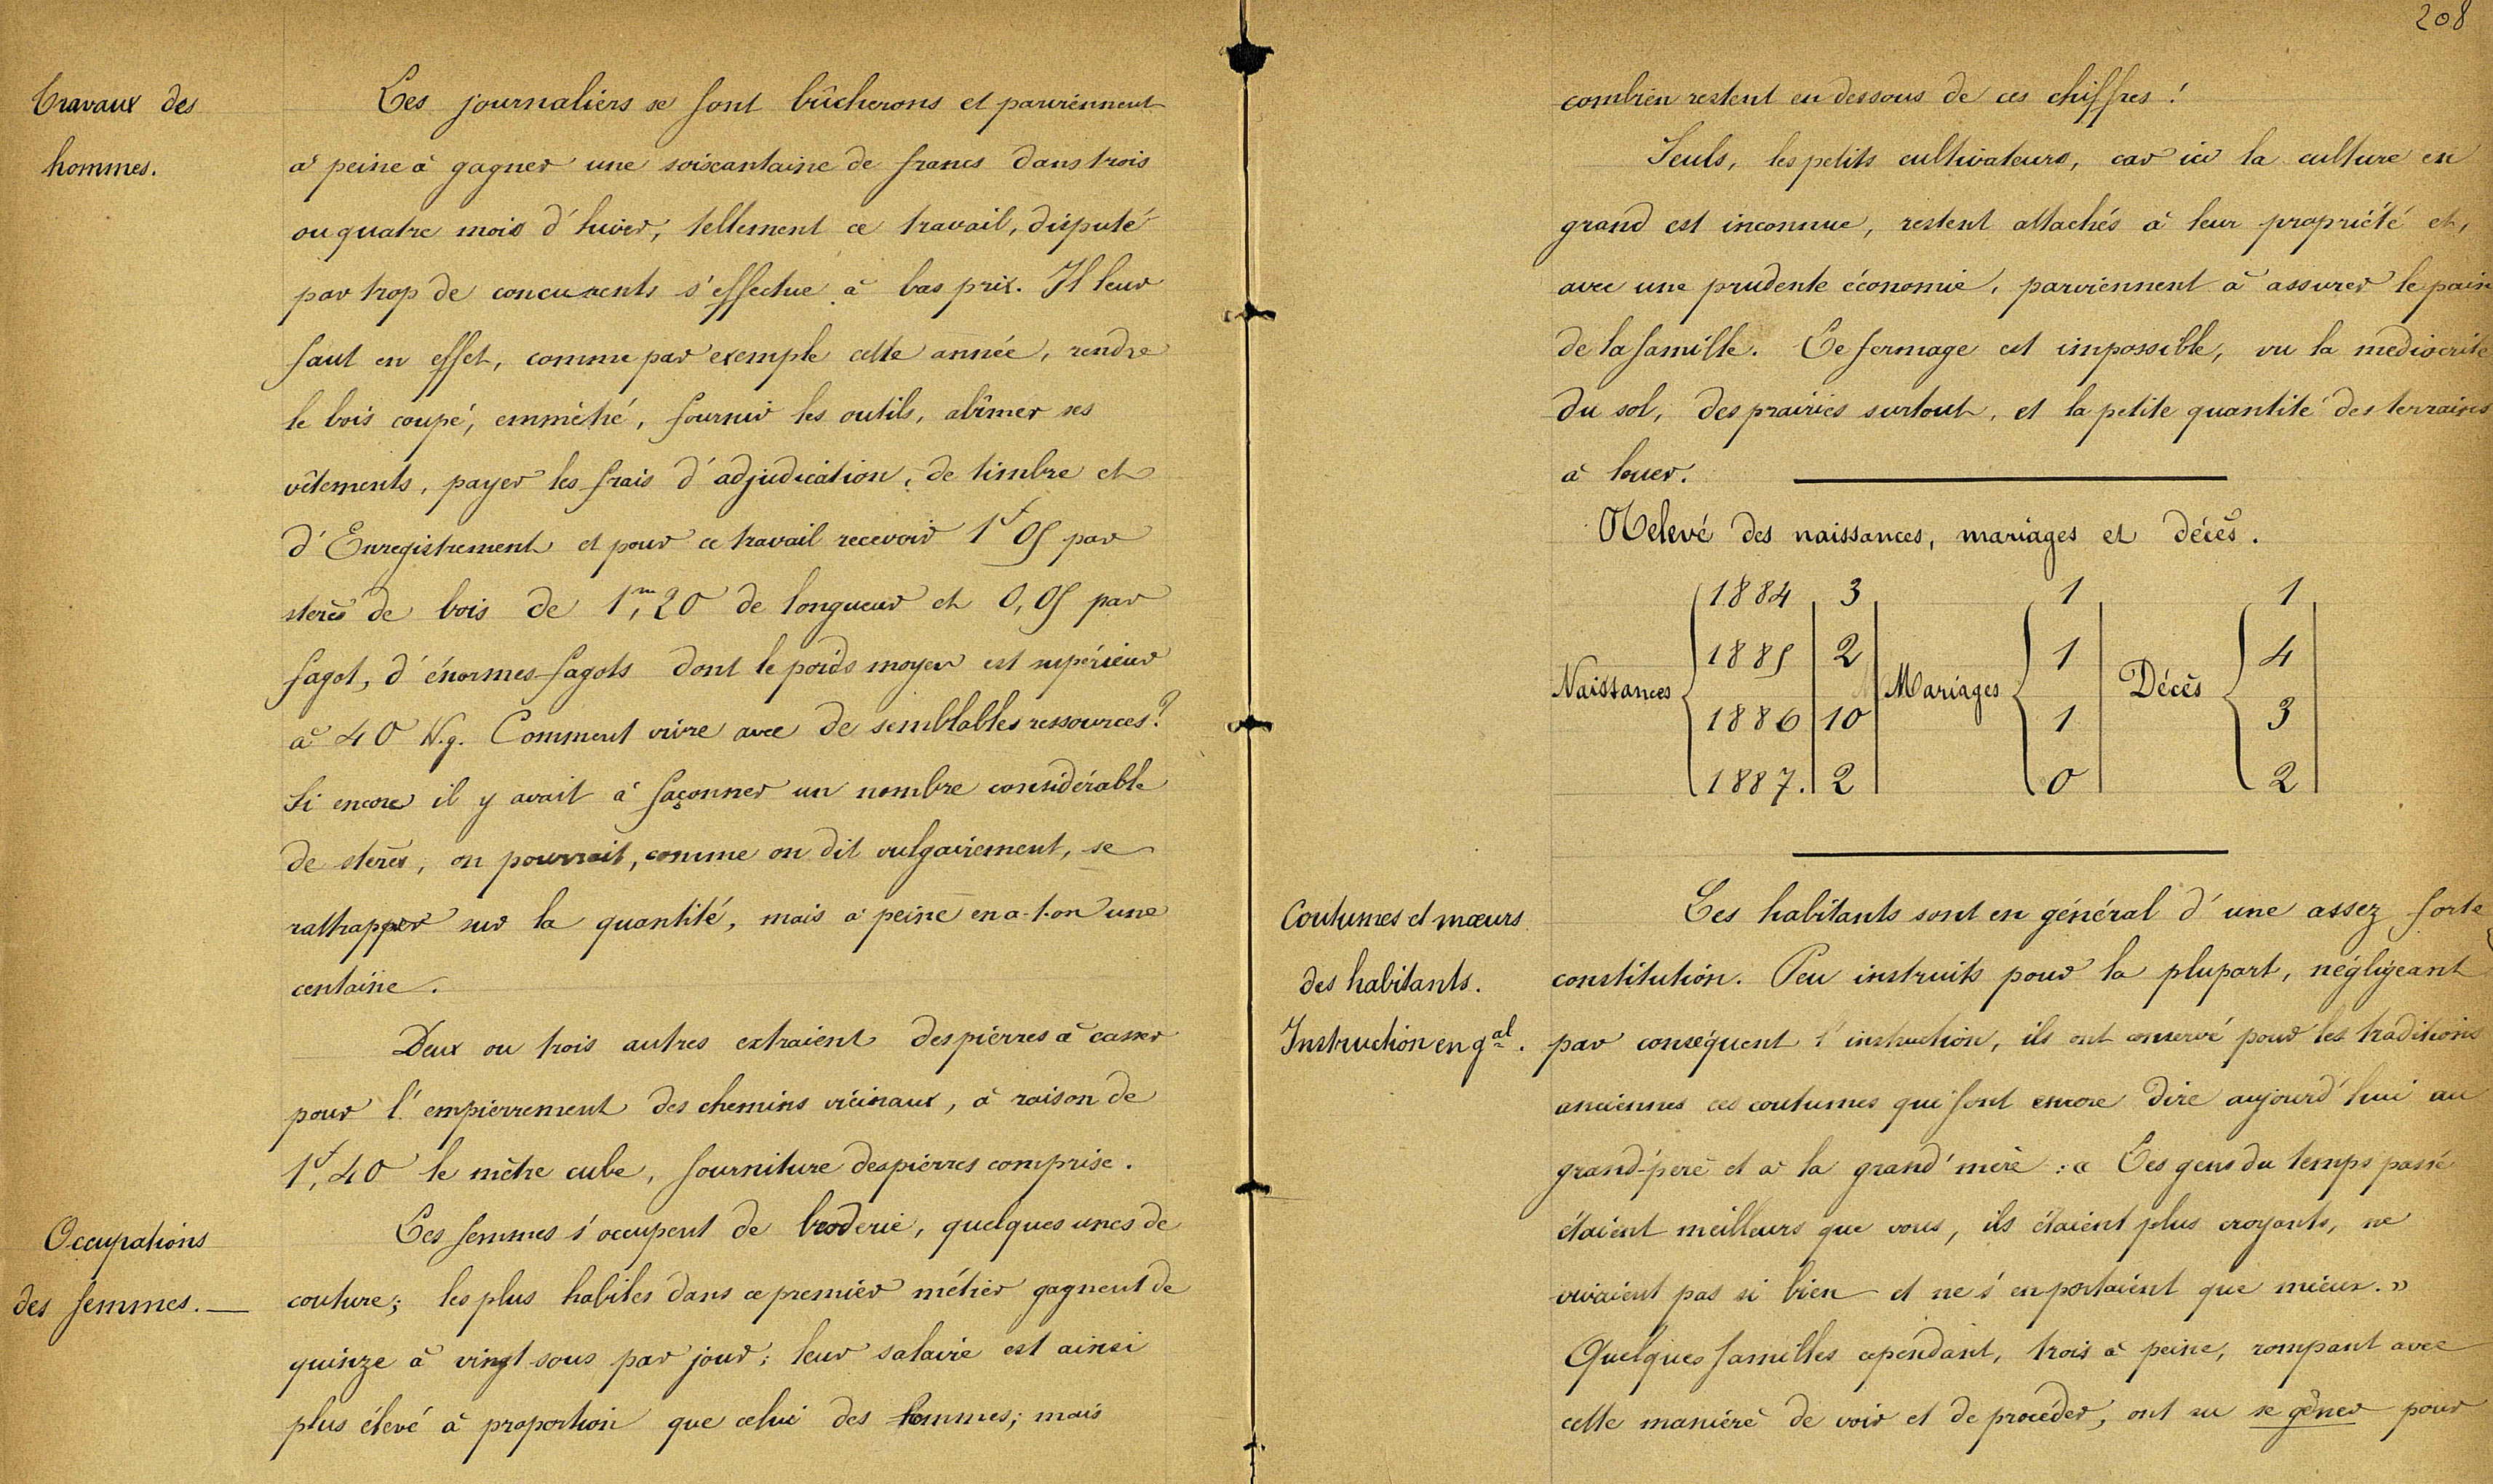 Travaux des
hommes.
Les journaliers se font bûcherons et parviennent
à peine à gagner une soixantaine de francs dans trois
ou quatre mois d'hiver, tellement ce travail, disputé
par trop de concurrents s'effectue à bas prix. Il leur
faut en effet, comme par exemple cette année, rendre
le bois coupé, emmètré, fournir les outils, abîmer ses
vêtements, payer les frais d'adjudication, de timbre et
d'Enregistrement et pour ce travail recevoir 1f 05 par
stère de bois de 1m,20 de longueur et 0,05 par
fagot, d'énormes fagots dont le poids moyen est supérieur
à 40 K.g. Comment vivre avec de semblables ressources?
Si encore il y avait à façonner un nombre considérable
de stères, on pourrait, comme on dit vulgairement, se
rattrapper sur la quantité, mais à peine en a-t-on une
centaine.
Deux ou trois autres extraient des pierres à casser
pour l'empierrement des chemins vicinaux, à raison de
1f,40 le mètre cube, fourniture des pierres comprise.
Occupations
des femmes. —
Les femmes s'occupent de broderie, quelques unes de
couture; les plus habiles dans ce premier métier gagnent de
quinze à vingt sous par jour; leur salaire est ainsi
plus élevé à proportion que celui des hommes; mais
208
combien restent en dessous de ces chiffres!
Seuls, les petits cultivateurs, car ici la culture en
grand est inconnue, restent attachés à leur propriété et,
avec une prudente économie, parviennent à assurer le pain
de la famille. Le fermage est impossible, vu la mediocrité
du sol, des prairies surtout, et la petite quantité des terrains
à louer.
Relevé des naissances, mariages et décès.
1884 3 1 1
1885 2 1 4
Naissances Mariages Décès
1886 10 1 3
1887. 2 0 2
Coutumes et mœurs
des habitants.
Instruction en gal.
Les habitants sont en général d'une assez forte
constitution. Peu instruits pour la plupart, négligeant
par conséquent l'instruction, ils ont conservé pour les traditions
anciennes ces coutumes qui font encore dire aujourd'hui au
grand-père et à la grand'mère: « Les gens du temps passé
étaient meilleurs que vous, ils étaient plus croyants, ne
vivaient pas si bien et ne s'en portaient que mieux. »
Quelques familles cependant, trois à peine, rompant avec
cette manière de voir et de procéder, ont su se gêner pour